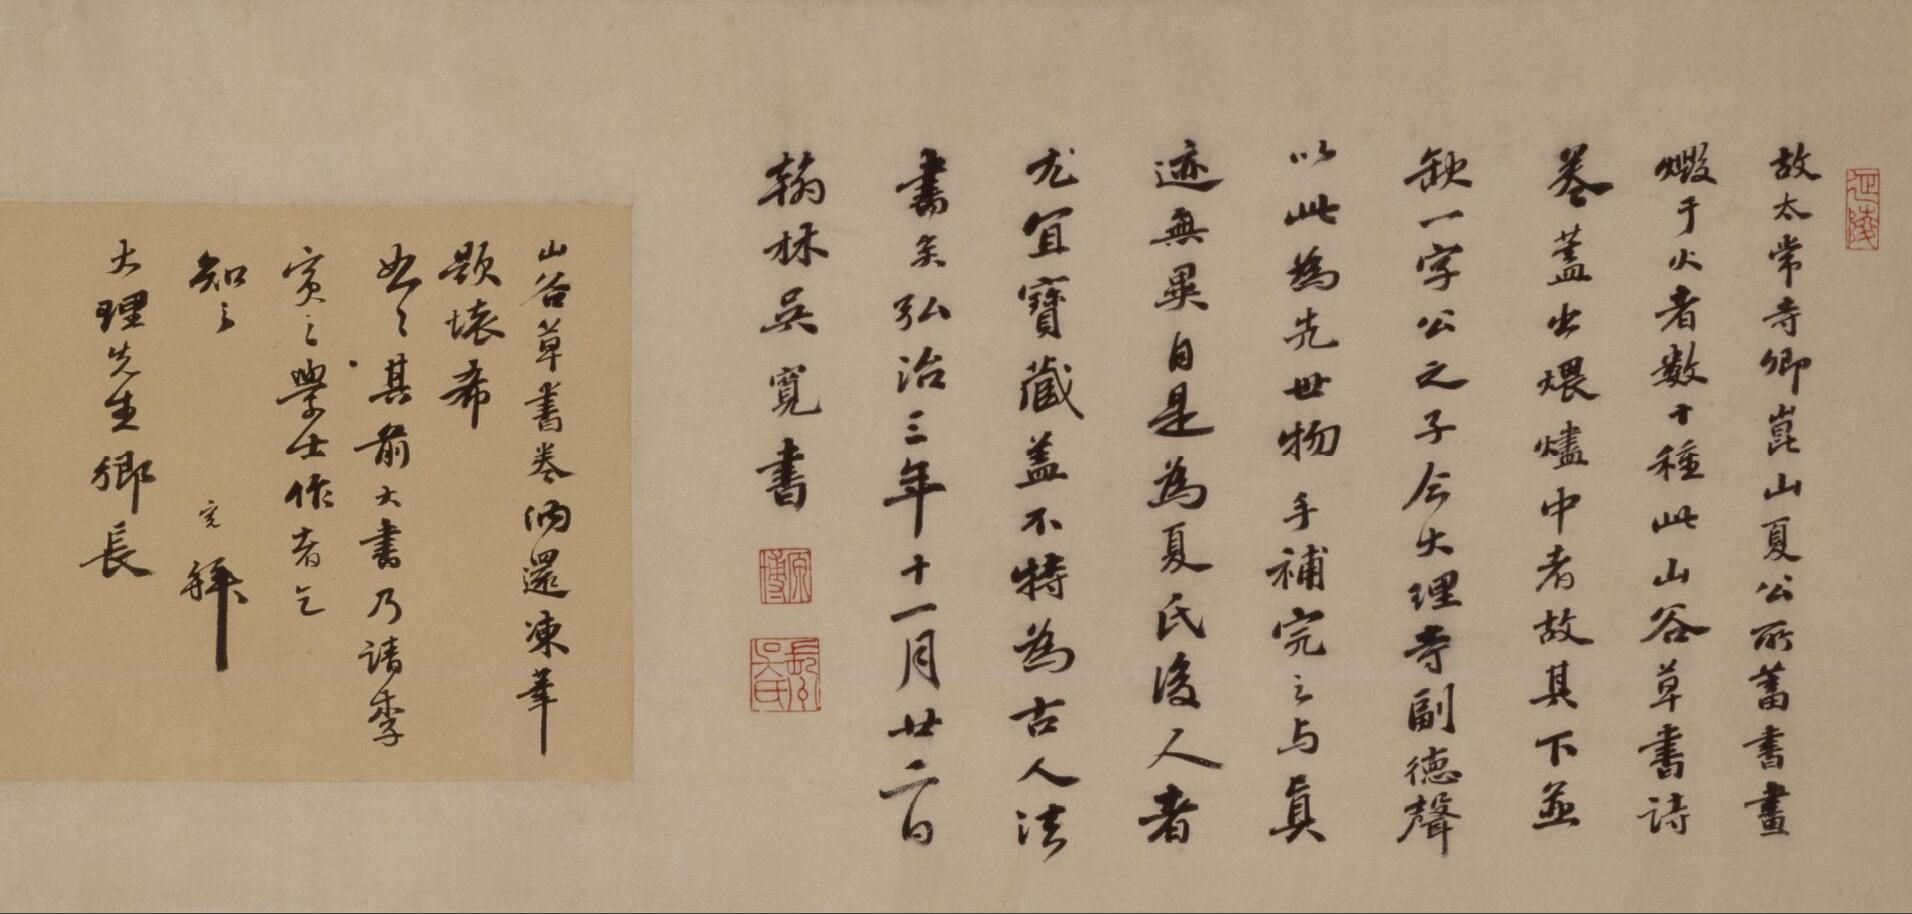 延陵
故太常寺卿崑山夏公所蓄書畫
燬于火者數十種此山谷草書詩
卷蓋出煨燼中者故其下並
缺一字公之子今大理寺副德聲
以此為先世物手補完之与真
迹無異自是為夏氏後人者
尤宜寶藏蓋不特為古人法
書矣弘治三年十一月廿二日
翰林吳寬書
原博
山谷草書卷納還凍筆
題壞希
其前大書乃請李
賓之學士作者乞
知之
寬拜
大理先生鄉長